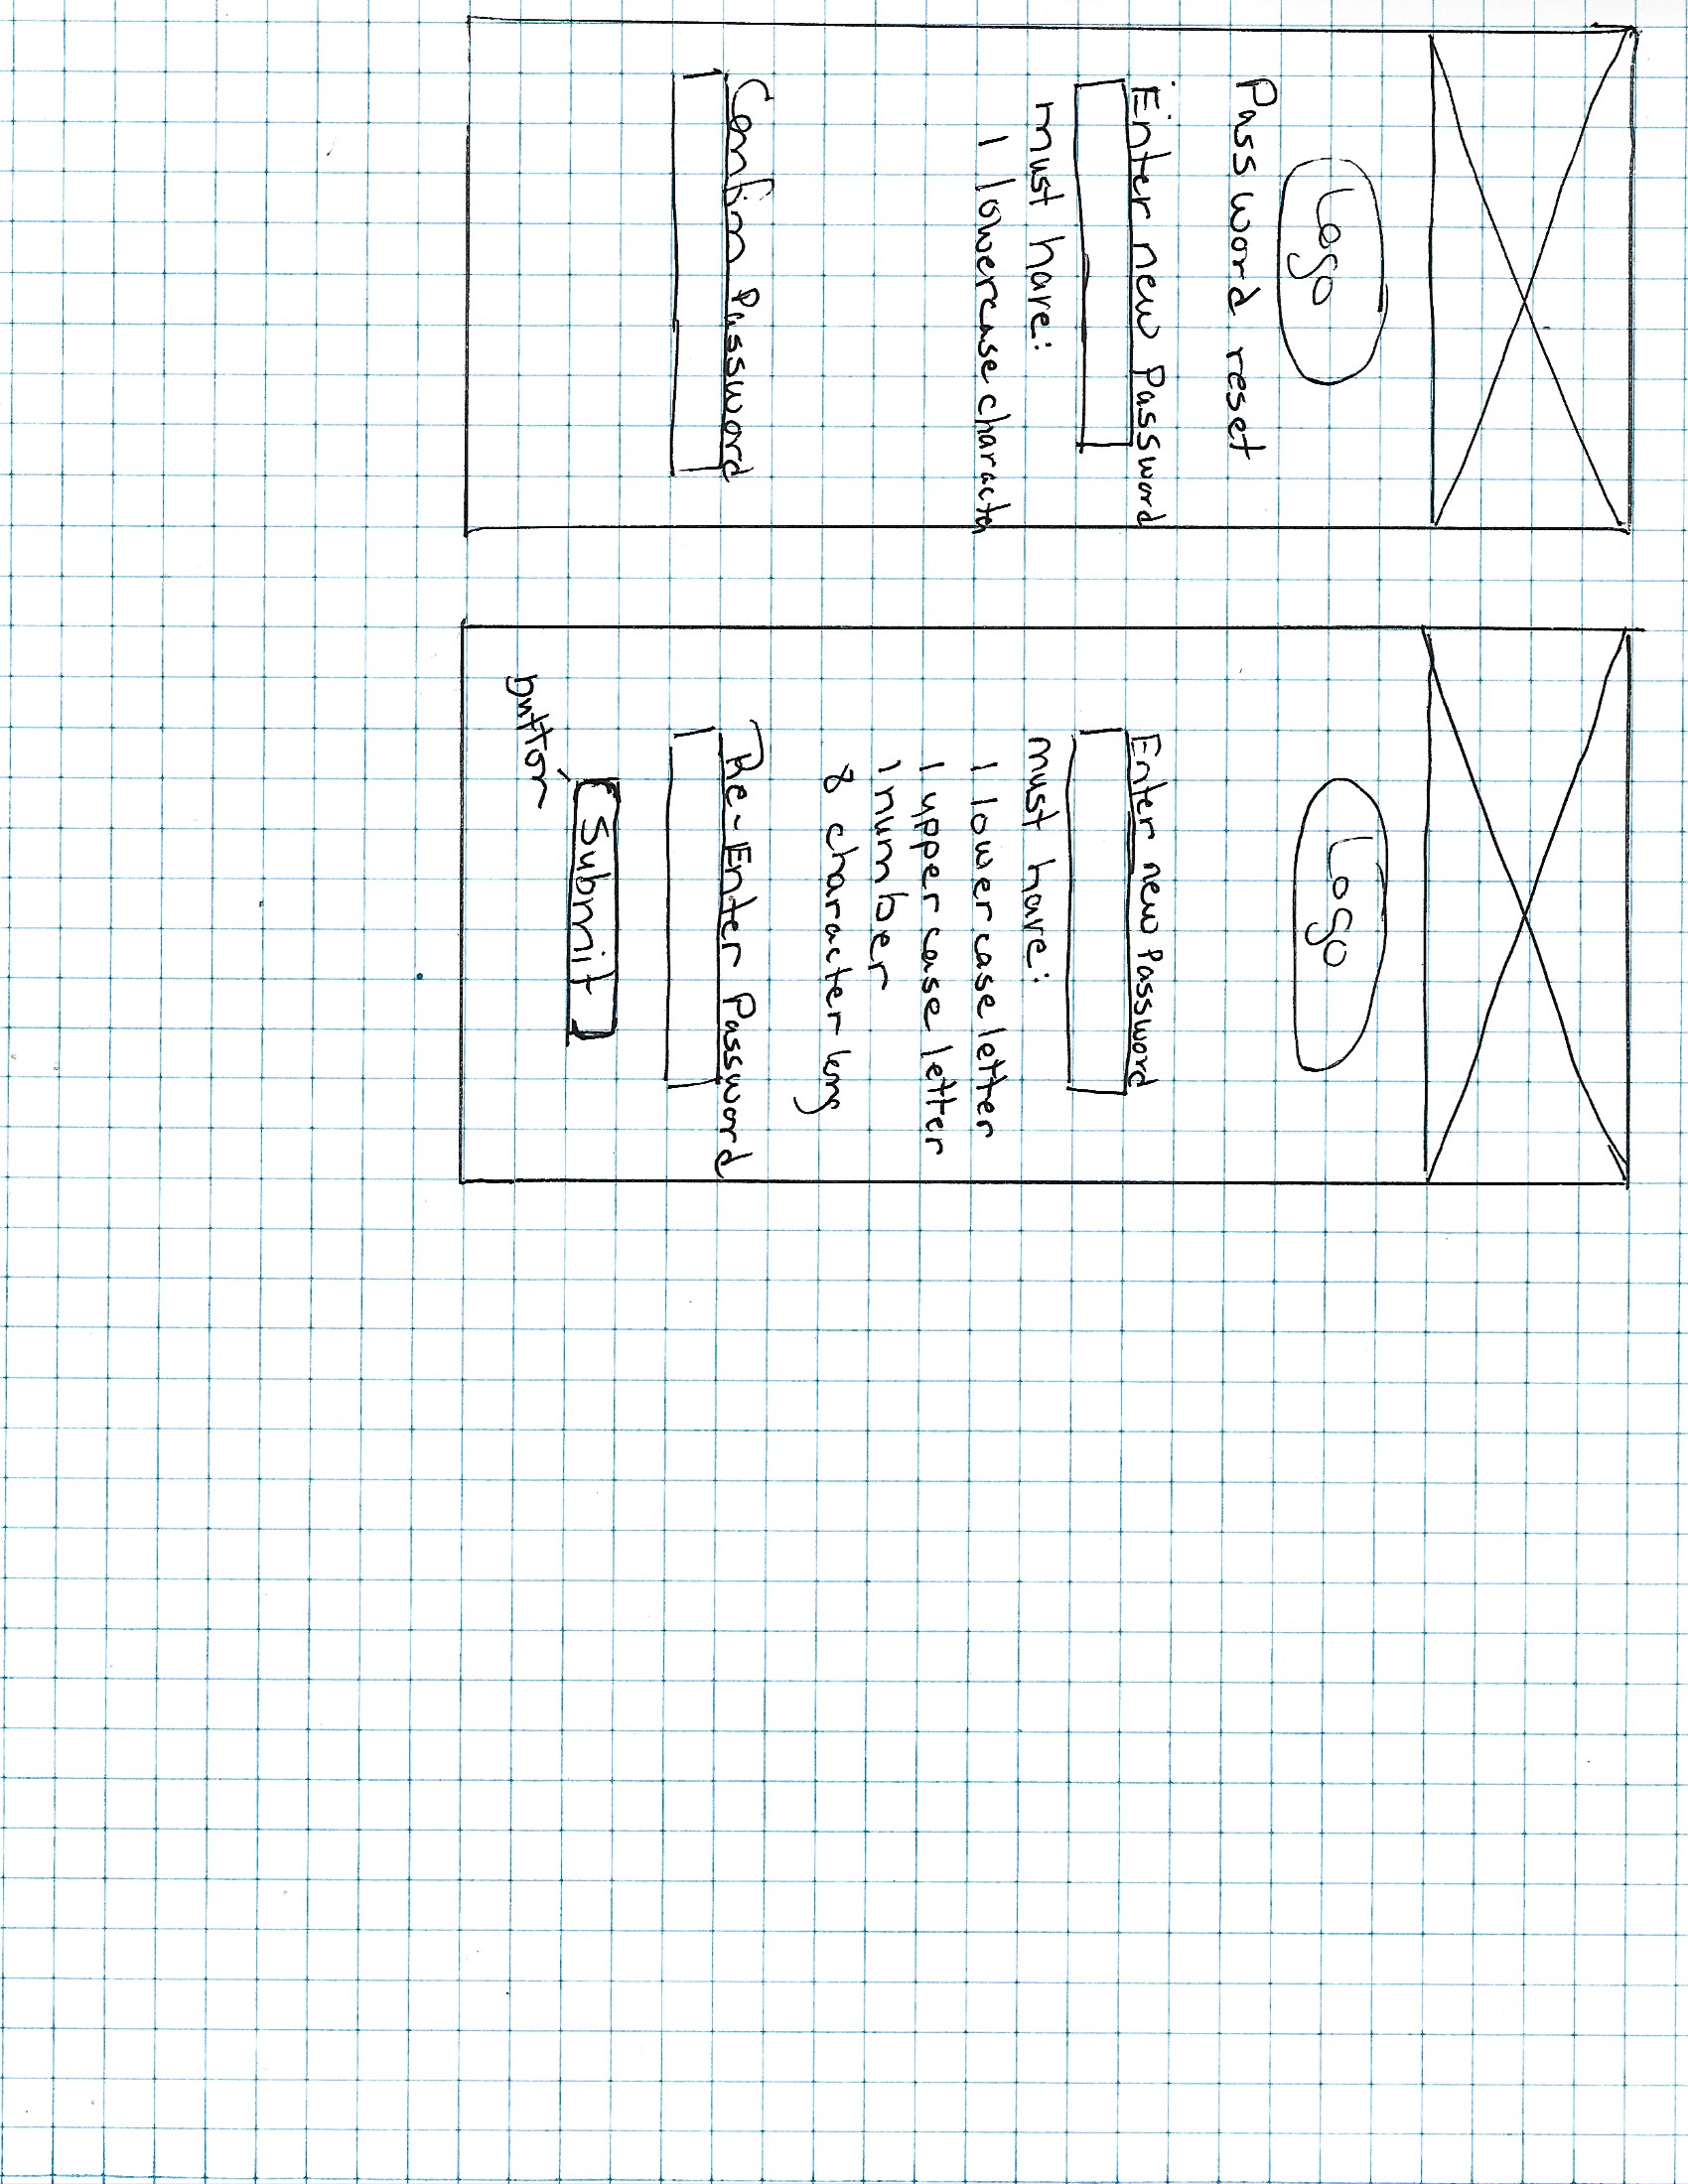 Logo
Password reset
Enter new Password
must have:
1 lowercase character
Confirm Password
Logo
Enter new Password
must have:
1 lowercase letter
1 uppercase letter
1 number
8 character long
Re-Enter Password
Submit
button